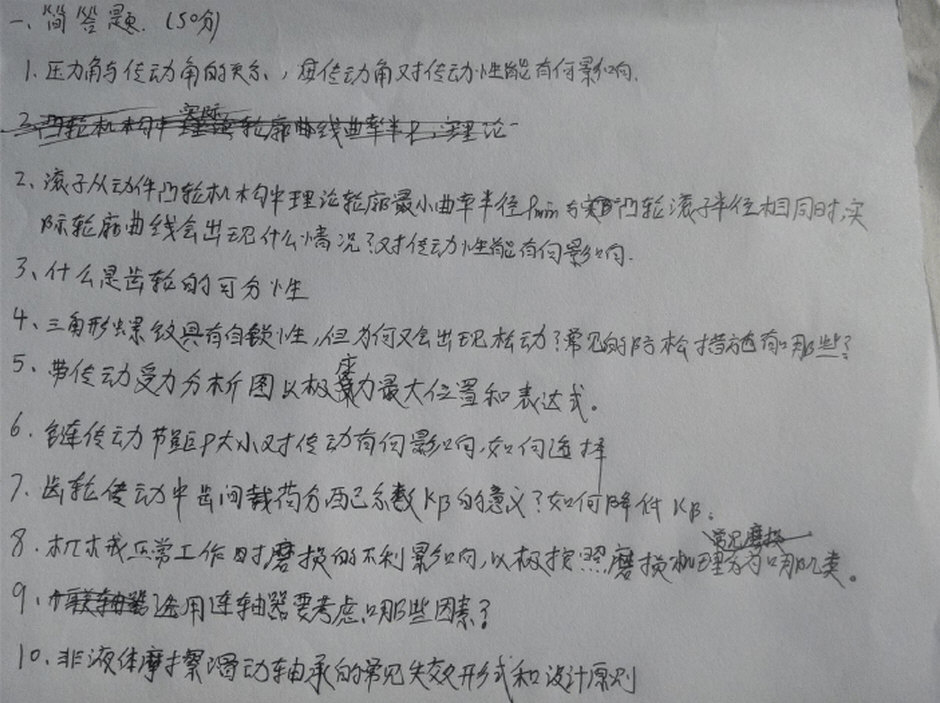 一、简答题.（50分）
1. 压力角与传动角的关系，传动角对传动性能有何影响.
2、滚子从动件凸轮机构中理论轮廓最小曲率半径ρmin与凸轮滚子半径相同时,实
际轮廓曲线会出现什么情况?对传动性能有何影响.
3、什么是齿轮的可分性
4、三角形螺纹具有自锁性,但为何又会出现松动?常见的防松措施有哪些?
5、带传动受力分析图以极应力最大位置和表达式。
6.链传动节距P大小对传动有何影响,如何选择
7.齿轮传动中齿间载荷分配系数Kβ的意义?如何降低Kβ.
8.机械正常工作时磨损的不利影响,以极按照磨损机理分为哪几类。
9.选用连轴器要考虑哪些因素?
10.非液体摩擦滑动轴承的常见失效形式和设计原则